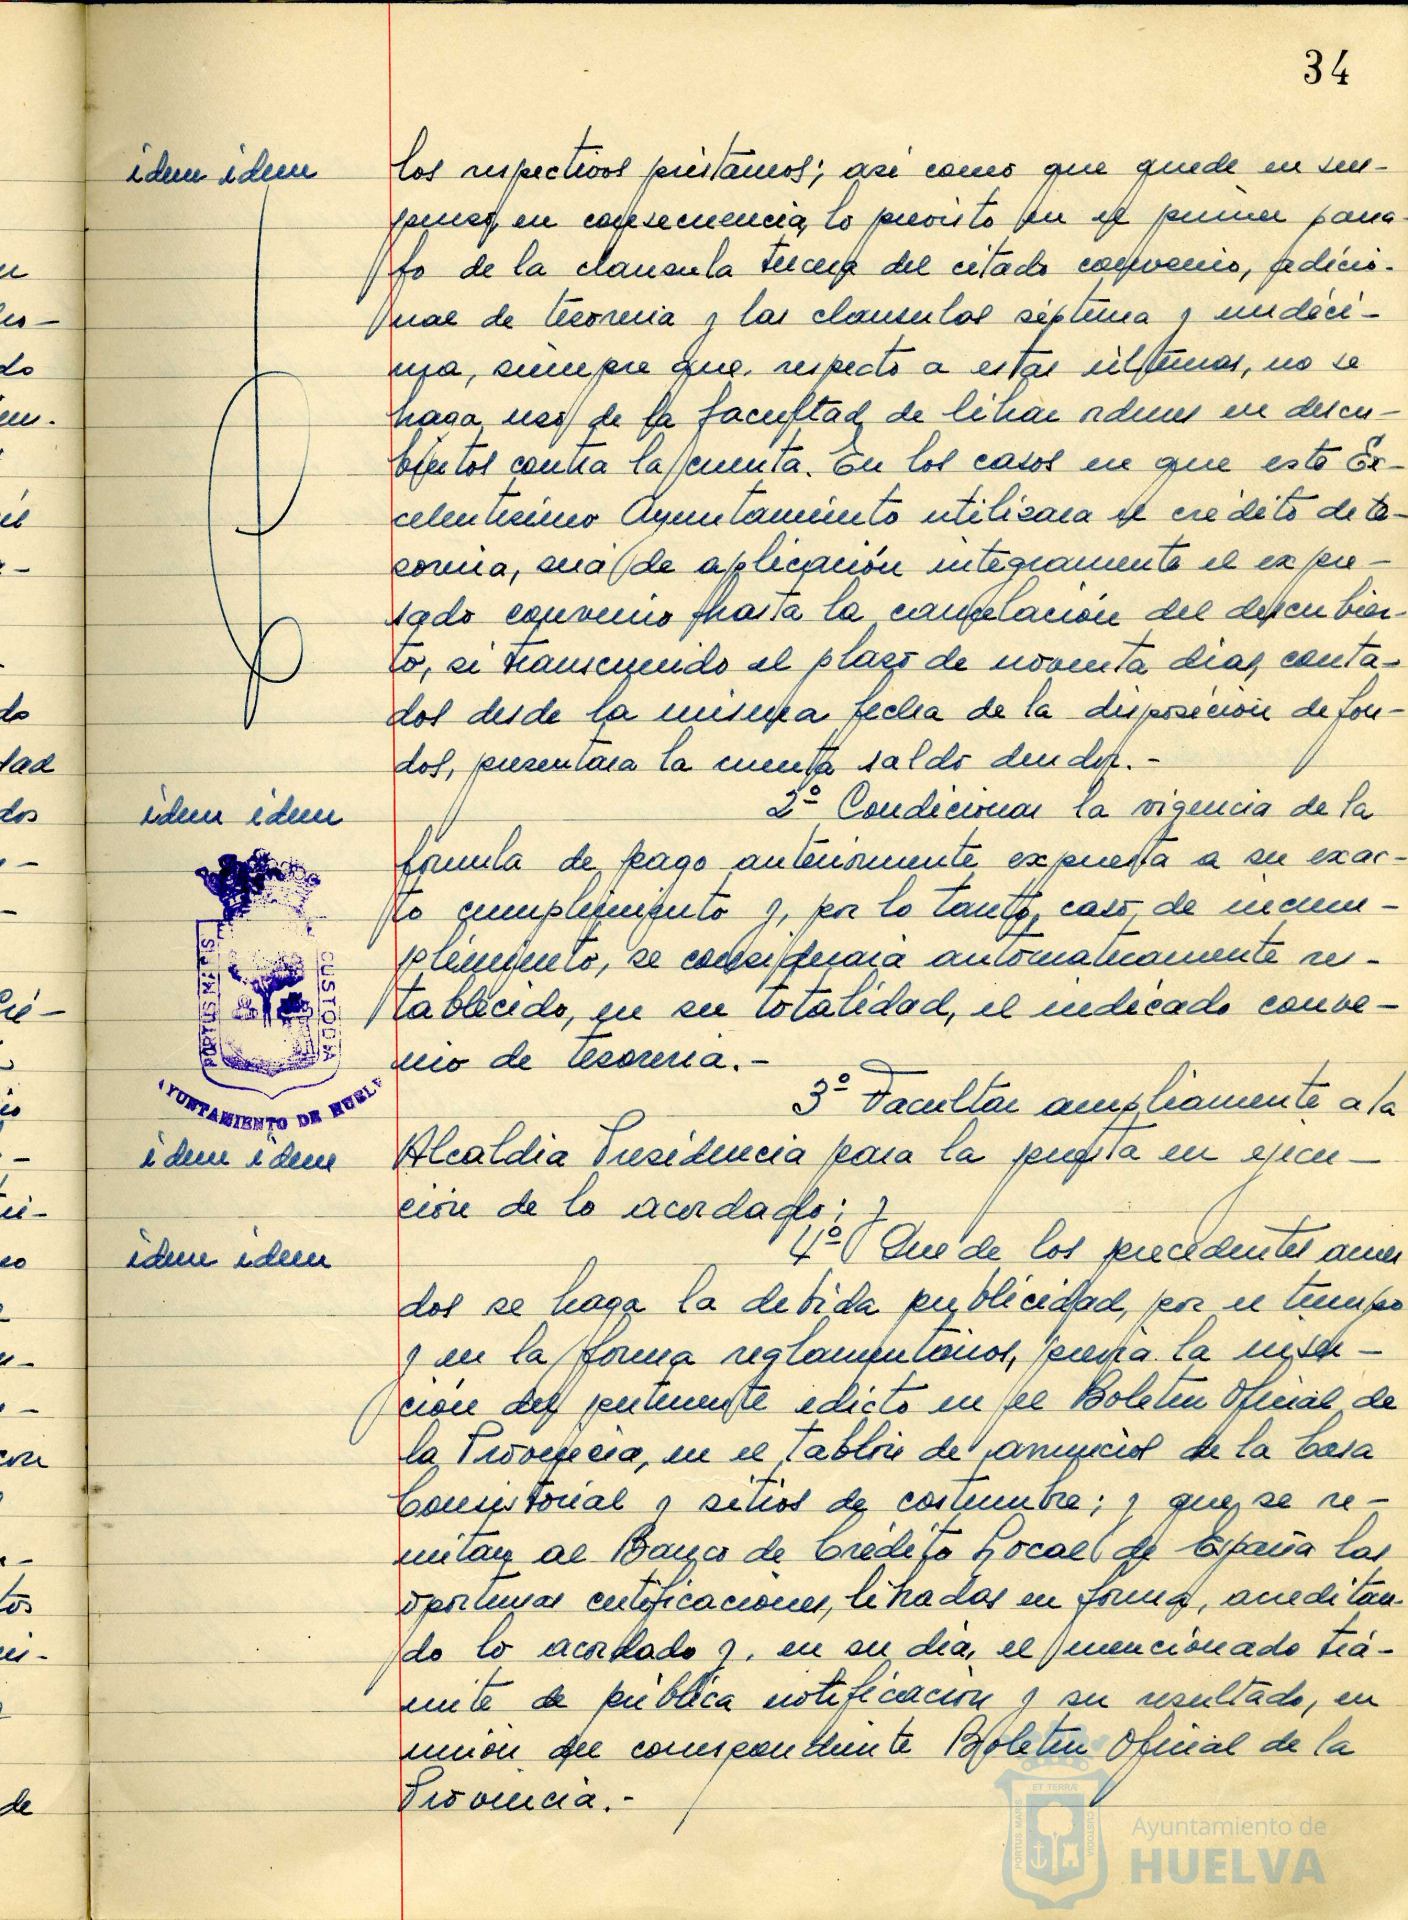 34
idem idem
los respectivos préstamos; asi como que quede en sus-
penso, en consecuencia, lo previsto en el primer parra-
fo de la clausula tercera del citado convenio, adicio-
nal de tesoreria y las clausulas séptima y undéci-
ma, siempre que, respecto a estas últimas, no se
haga uso de la facultad de librar ordenes en descu-
biertos contra la cuenta. En los casos en que este Ex-
celentisimo Ayuntamiento utilizara el crédito de te-
soreria, será de aplicación integramente el expre-
sado convenio hasta la cancelación del descubier-
to, si transcurrido el plazo de noventa dias, conta-
dos desde la misma fecha de la disposición de fon-
dos, presentara la cuenta saldo deudor.-
idem idem
2º Condicionar la vigencia de la
formula de pago anteriormente expuesta a su exac-
to cumplimiento y, por lo tanto, caso de incum-
plimiento, se considerará automaticamente res-
tablecido, en su totalidad, el indicado conve-
nio de tesoreria.-
PORTUS MARIS
CUSTODIA
AYUNTAMIENTO DE HUELVA
3º Facultar ampliamente a la
idem idem
Alcaldia Presidencia para la puesta en ejecu-
ción de lo acordado; y
idem idem
4º Que de los precedentes acuer
dos se haga la debida publicidad, por el tiempo
y en la forma reglamentarios, previa la inser-
ción del pertinente edicto en el Boletin Oficial de
la Provincia, en el tablón de anuncios de la Casa
Consistorial y sitios de costumbre; y que se re-
mitan al Banco de Crédito Local de España las
oportunas certificaciones, libradas en forma, acreditan-
do lo acordado y, en su dia, el mencionado trá-
mite de pública notificación y su resultado, en
unión del correspondiente Boletin Oficial de la
Provincia.-
ET TERRÆ
PORTUS MARIS
CUSTODIA
Ayuntamiento de
HUELVA